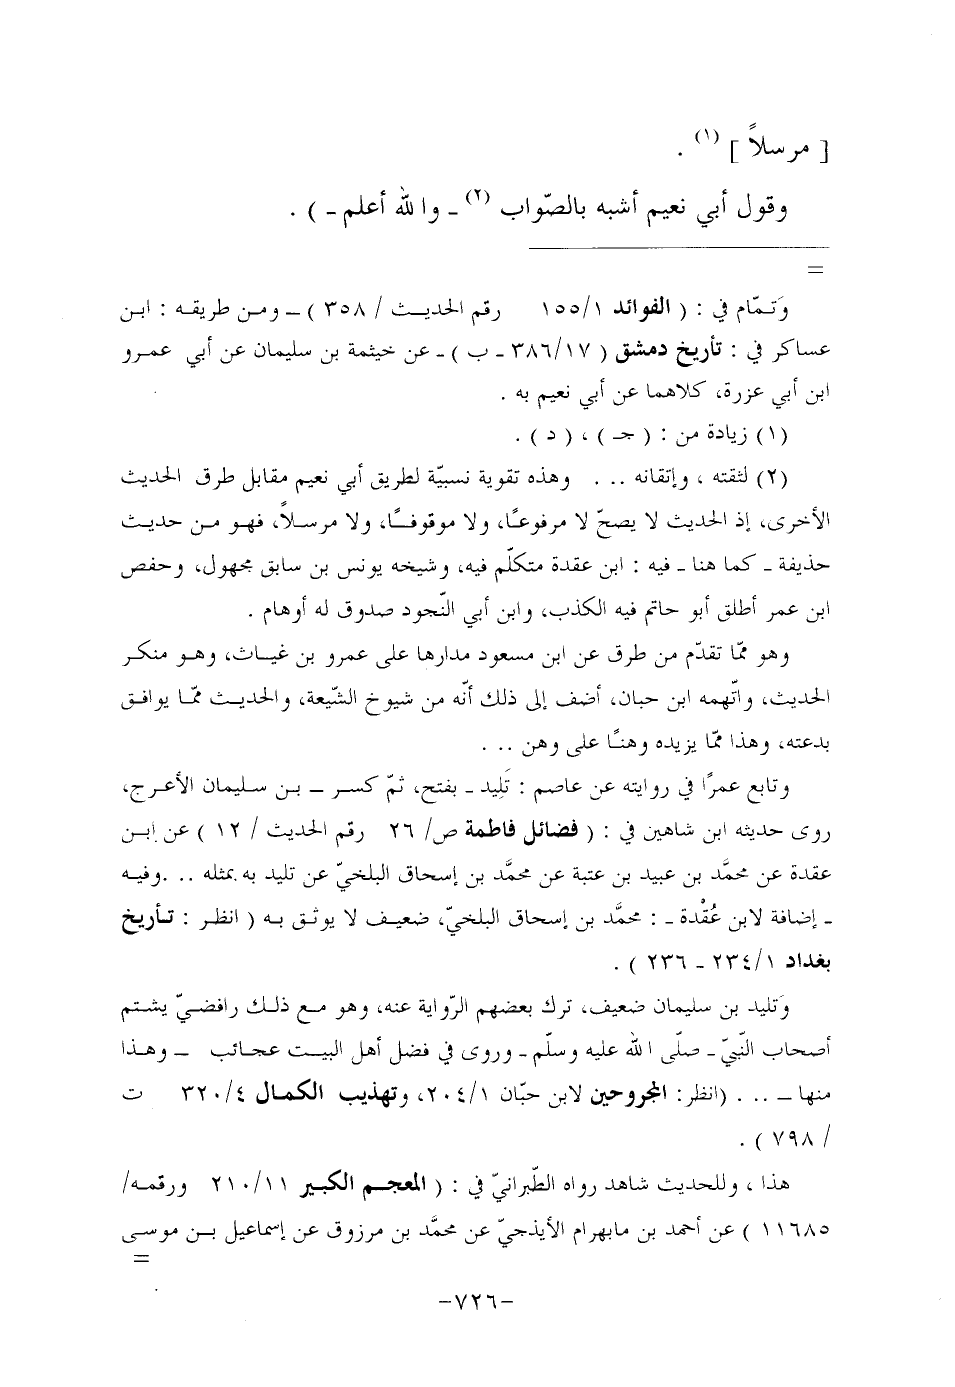 [ مرسلاً ] (١) .
وقول أبي نعيم أشبه بالصّواب (٢) ـ والله أعلم ـ ) .
=
وَتمّام في : ( الفوائد ١/١٥٥ رقم الحديث / ٣٥٨ ) ـ ومن طريقه : ابن
عساكر في : تأريخ دمشق ( ١٧/٣٨٦ ـ ب ) ـ عن خيثمة بن سليمان عن أبي عمرو
ابن أبي عزرة، كلاهما عن أبي نعيم به .
(١) زيادة من : ( جـ ) ، ( د ) .
(٢) لثقته ، وإتقانه .. . وهذه تقوية نسبيّة لطريق أبي نعيم مقابل طرق الحديث
الأخرى، إذ الحديث لا يصحّ لا مرفوعًا، ولا موقوفًا، ولا مرسلاً، فهو من حديث
حذيفة ـ كما هنا ـ فيه : ابن عقدة متكلّم فيه، وشيخه يونس بن سابق مجهول، وحفص
ابن عمر أطلق أبو حاتم فيه الكذب، وابن أبي النّجود صدوق له أوهام .
وهو ممّا تقدّم من طرق عن ابن مسعود مدارها على عمرو بن غياث، وهو منكر
الحديث، واتّهمه ابن حبان، أضف إلى ذلك أنّه من شيوخ الشّيعة، والحديث ممّا يوافق
بدعته، وهذا ممّا يزيده وهنًا على وهن .. .
وتابع عمرًا في روايته عن عاصم : تَلِيد ـ بفتح، ثمّ كسر ـ بن سليمان الأعرج،
روى حديثه ابن شاهين في : ( فضائل فاطمة ص/ ٢٦ رقم الحديث / ١٢ ) عن ابن
عقدة عن محمَّد بن عبيد بن عتبة عن محمَّد بن إسحاق البلخيّ عن تليد به بمثله .. .وفيه
ـ إضافة لابن عُقْدة ـ : محمَّد بن إسحاق البلخيّ، ضعيف لا يوثق به ( انظر : تأريخ
بغداد ١/٢٣٤ ـ ٢٣٦ ) .
وَتليد بن سليمان ضعيف، ترك بعضهم الرّواية عنه، وهو مع ذلك رافضيّ يشتم
أصحاب النّبيّ ـ صلّى الله عليه وسلّم ـ وروى في فضل أهل البيت عجائب ـ وهذا
منها ـ .. . (انظر: المجروحين لابن حبّان ١/٢٠٤، وتهذيب الكمال ٤/٣٢٠ ت
/ ٧٩٨ ) .
هذا ، وللحديث شاهد رواه الطّبرانيّ في : ( المعجم الكبير ١١/٢١٠ ورقمه/
١١٦٨٥ ) عن أحمد بن مابهرام الأيذجيّ عن محمَّد بن مرزوق عن إسماعيل بن موسى
=
-٧٢٦-